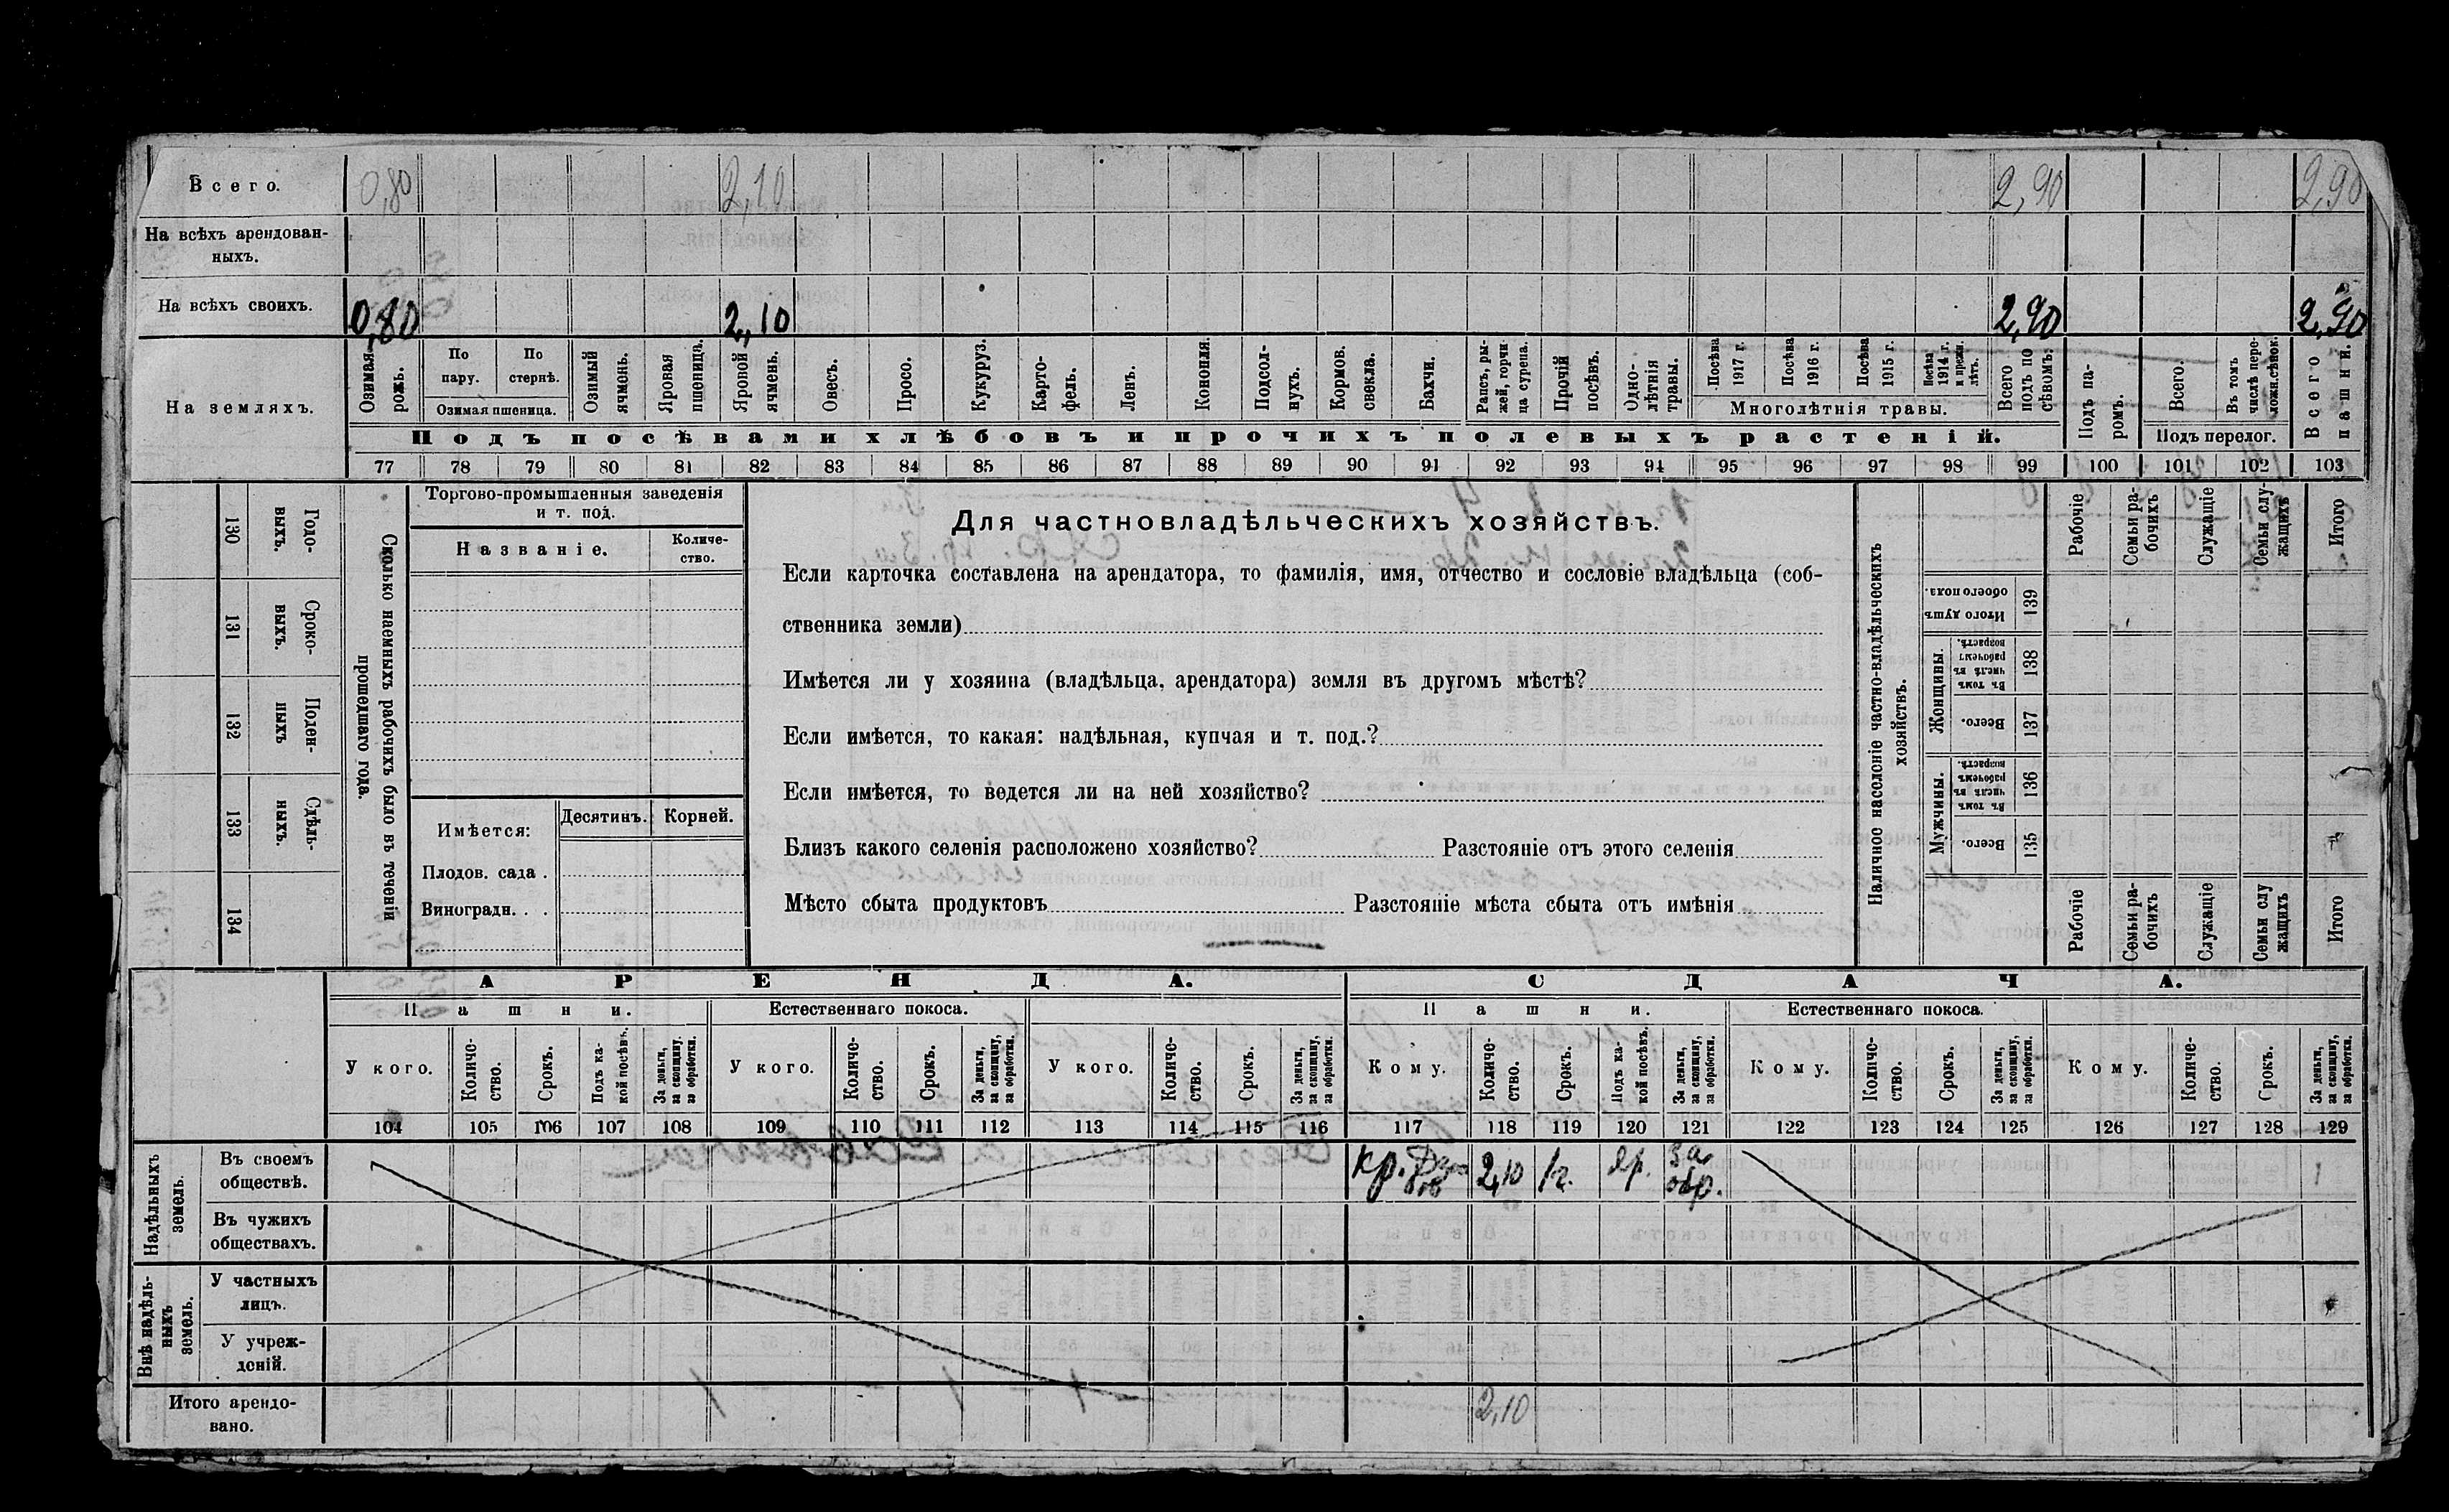 Всего. 0,80 2,10 2,90 2,90
На всѣхъ арендован-
ныхъ.
На всѣхъ своихъ. 0,80 2,10 2,90 2,90
На земляхъ.
Озимая рожь.
По пару.
По стернѣ.
Озимая пшеница.
Озимый ячмень.
Яровая пшеница.
Яровой ячмень.
Овесъ.
Просо.
Кукуруз.
Карто-
фель.
Ленъ.
Конопля.
Подсол-
нухъ.
Кормов.
свекла.
Бахчи.
Рапсъ, ры-
жей, горчи
ца сурепа.
Прочій
посѣвъ.
Одно-
лѣтнія
травы.
Посѣва
1917 г.
Посѣва
1916 г.
Посѣва
1915 г.
Посѣва
1914 г.
и прежн.
лѣтъ.
Многолѣтнія травы.
Всего
подъ по
сѣвомъ:
Подъ па-
ромъ.
Всего.
Въ томъ
числѣ пере-
ложн.сѣнок.
Подъ перелог.
Всего
пашни.
Подъ посѣвами хлѣбовъ и прочихъ полевыхъ растеній.
77 78 79 80 81 82 83 84 85 86 87 88 89 90 91 92 93 94 95 96 97 98 99 100 101 102 103
130 Годо-
выхъ.
131 Сроко-
выхъ.
132 Поден-
ныхъ
133 Сдѣль-
ныхъ.
134
Сколько наемныхъ рабочихъ было въ теченіи
прошедшаго года.
Торгово-промышленныя заведенія
и т. под.
Названіе.
Количе-
ство.
Имѣется:
Десятинъ. Корней.
Плодов. сада .
Виноградн. . .
Для частновладѣльческихъ хозяйствъ.
Если карточка составлена на арендатора, то фамилія, имя, отчество и сословіе владѣльца (соб-
ственника земли)
Имѣется ли у хозяина (владѣльца, арендатора) земля въ другомъ мѣстѣ?
Если имѣется, то какая: надѣльная, купчая и т. под.?
Если имѣется, то ведется ли на ней хозяйство?
Близъ какого селенія расположено хозяйство? Разстояніе отъ этого селенія
Мѣсто сбыта продуктовъ Разстояніе мѣста сбыта отъ имѣнія
Наличное населеніе частно-владѣльческихъ
хозяйствъ.
Рабочіе
Семьи ра-
бочихъ
Служащіе
Семьи слу-
жащихъ
Итого
Итого душъ
обоего пола.
139
Женщины.
Въ томъ
числѣ въ
рабочемъ
возрастѣ.
138
Всего.
137
Мужчины.
Въ томъ
числѣ въ
рабочемъ
возрастѣ.
136
Всего.
135
Рабочіе
Семьи ра-
бочихъ
Служащіе
Семьи слу
жащихъ
Итого
АРЕНДА. СДАЧА.
Пашни. Естественнаго покоса. Пашни. Естественнаго покоса.
У кого.
Количе-
ство.
Срокъ.
Подъ ка-
кой посѣвъ.
За деньги,
за скопщину.
за обработки.
У кого.
Количе-
ство.
Срокъ.
За деньги,
за скопщину,
за обработки.
У кого.
Количе-
ство.
Срокъ.
За деньги,
за скопщину,
за обработки.
Кому.
Количе-
ство.
Срокъ.
Подъ ка-
кой посѣвъ.
За деньги,
за скопщину,
за обработки.
Кому.
Количе-
ство.
Срокъ.
За деньги,
за скопщину,
за обработки.
Кому.
Количе-
ство.
Срокъ.
За деньги,
за скопщину,
за обработки.
104 105 106 107 108 109 110 111 112 113 114 115 116 117 118 119 120 121 122 123 124 125 126 127 128 129
Надѣльныхъ
земель.
Въ своемъ
обществѣ.
кр. 2,10 1г. яр. за
обр.
Въ чужихъ
обществахъ.
Внѣ надѣль-
ныхъ
земель.
У частныхъ
лицъ.
У учреж-
деній.
Итого арендо-
вано.
2,10